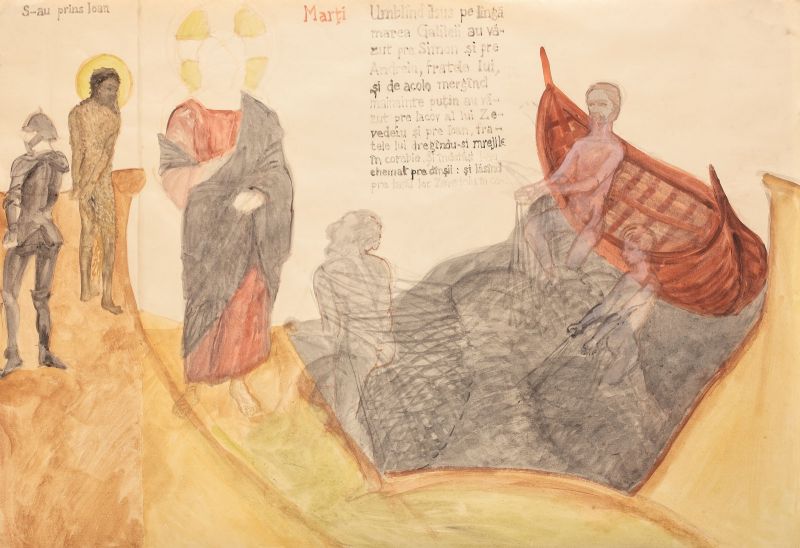 S-au prins Ioan
Marți
Umblînd Isus pe lîngă
marea Galileii au vă-
zut pre Simon și pre
Andreiu, fratele lui,
și de acolo mergînd
mainainte puțin au vă-
zut pre Iacov al lui Ze-
vedeiu și pre Ioan, fra-
tele lui dregîndu-si mrejile
în corabie și îndată i-au
chemat pre dînșii : și lăsînd
pre tatăl lor